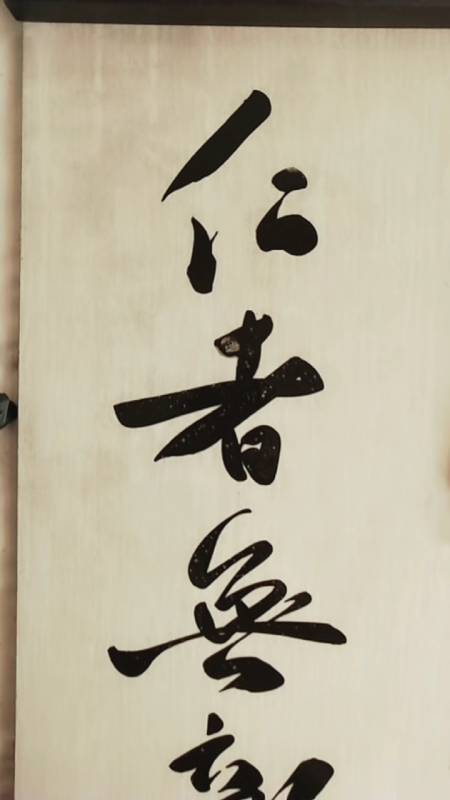 仁者無